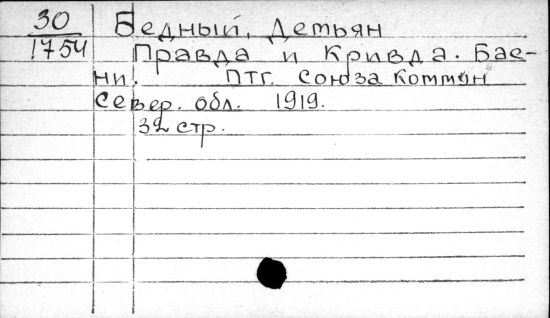 30 Бедный, Демьян
1754 Правда и Кривда. Бас-
ни. Птг. Союза Коммун
Север. обл. 1919.
32 стр.